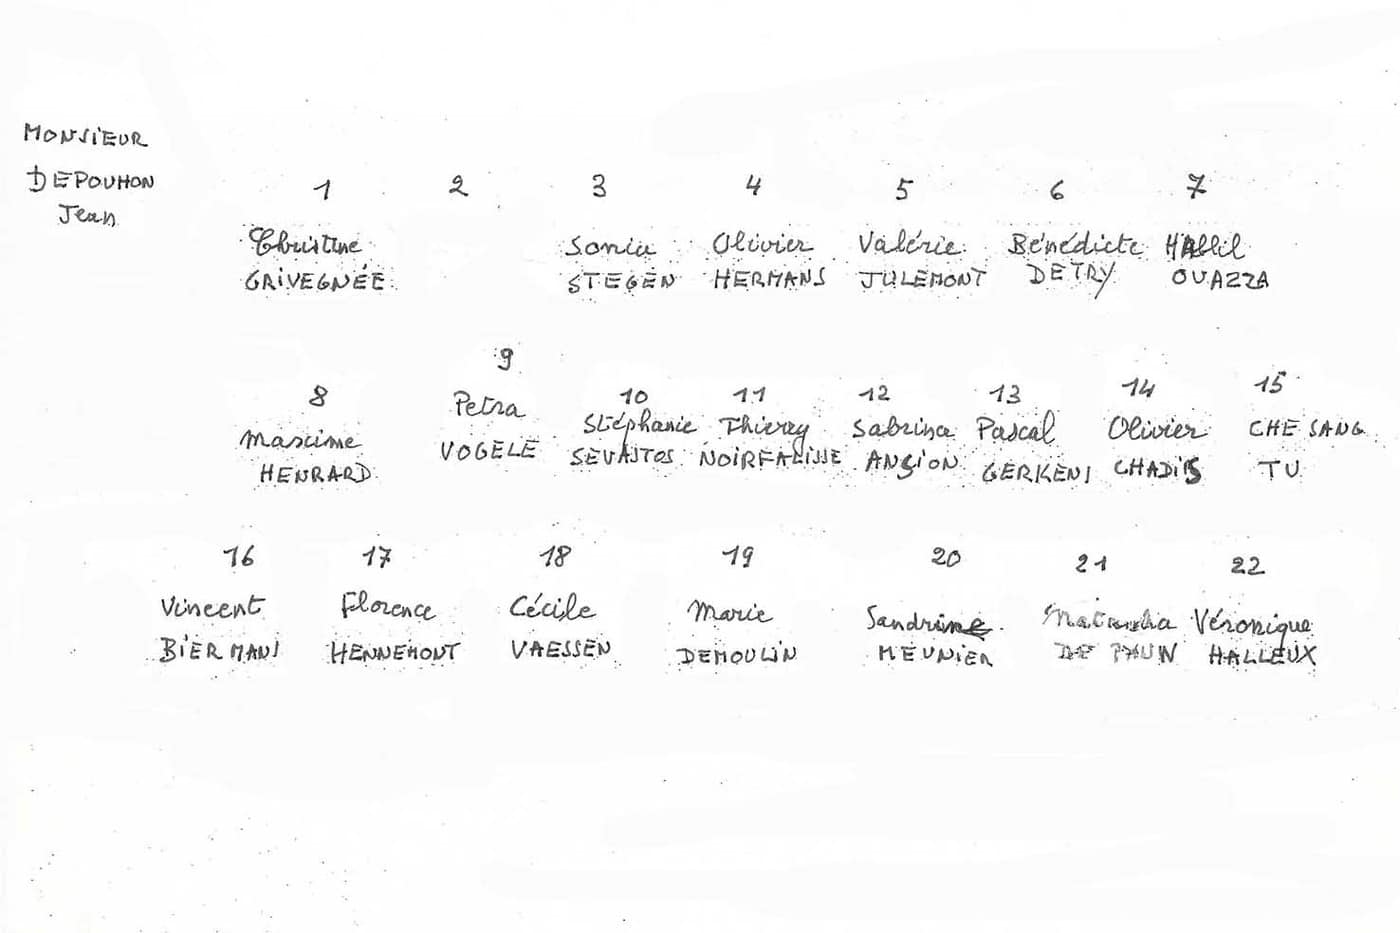 MONSIEUR
DEPOUHON
Jean
1 2 3 4 5 6 7
Christine Sonia Olivier Valérie Bénédicte HALLIL
GRIVEGNÉE STEGEN HERMANS JULEMONT DETRY OUAZZA
8 9 10 11 12 13 14 15
Maxime Petra Stéphanie Thierry Sabrina Pascal Olivier CHE SANG
HENRARD VOGELE SEVASTOS NOIRFALISSE ANSION GERKENS CHADIS TU
16 17 18 19 20 21 22
Vincent Florence Cécile Marie Sandrine Natascha Véronique
BIERMANS HENNEMONT VAESSEN DEMOULIN MEUNIER DE HALLEUX